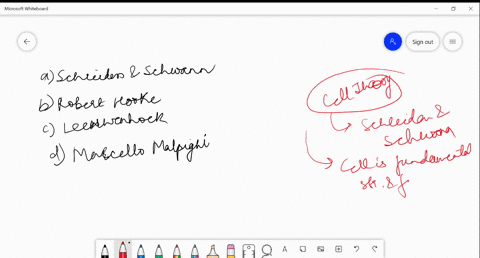 Microsoft Whiteboard
Sign out
a) Schleiden & Schwann
b) Robert Hooke
c) Leeuwenhock
d) Marcello Malpighi
Cell Theory
Schleidan &
Schwann
Cell is fundamental
str. & f